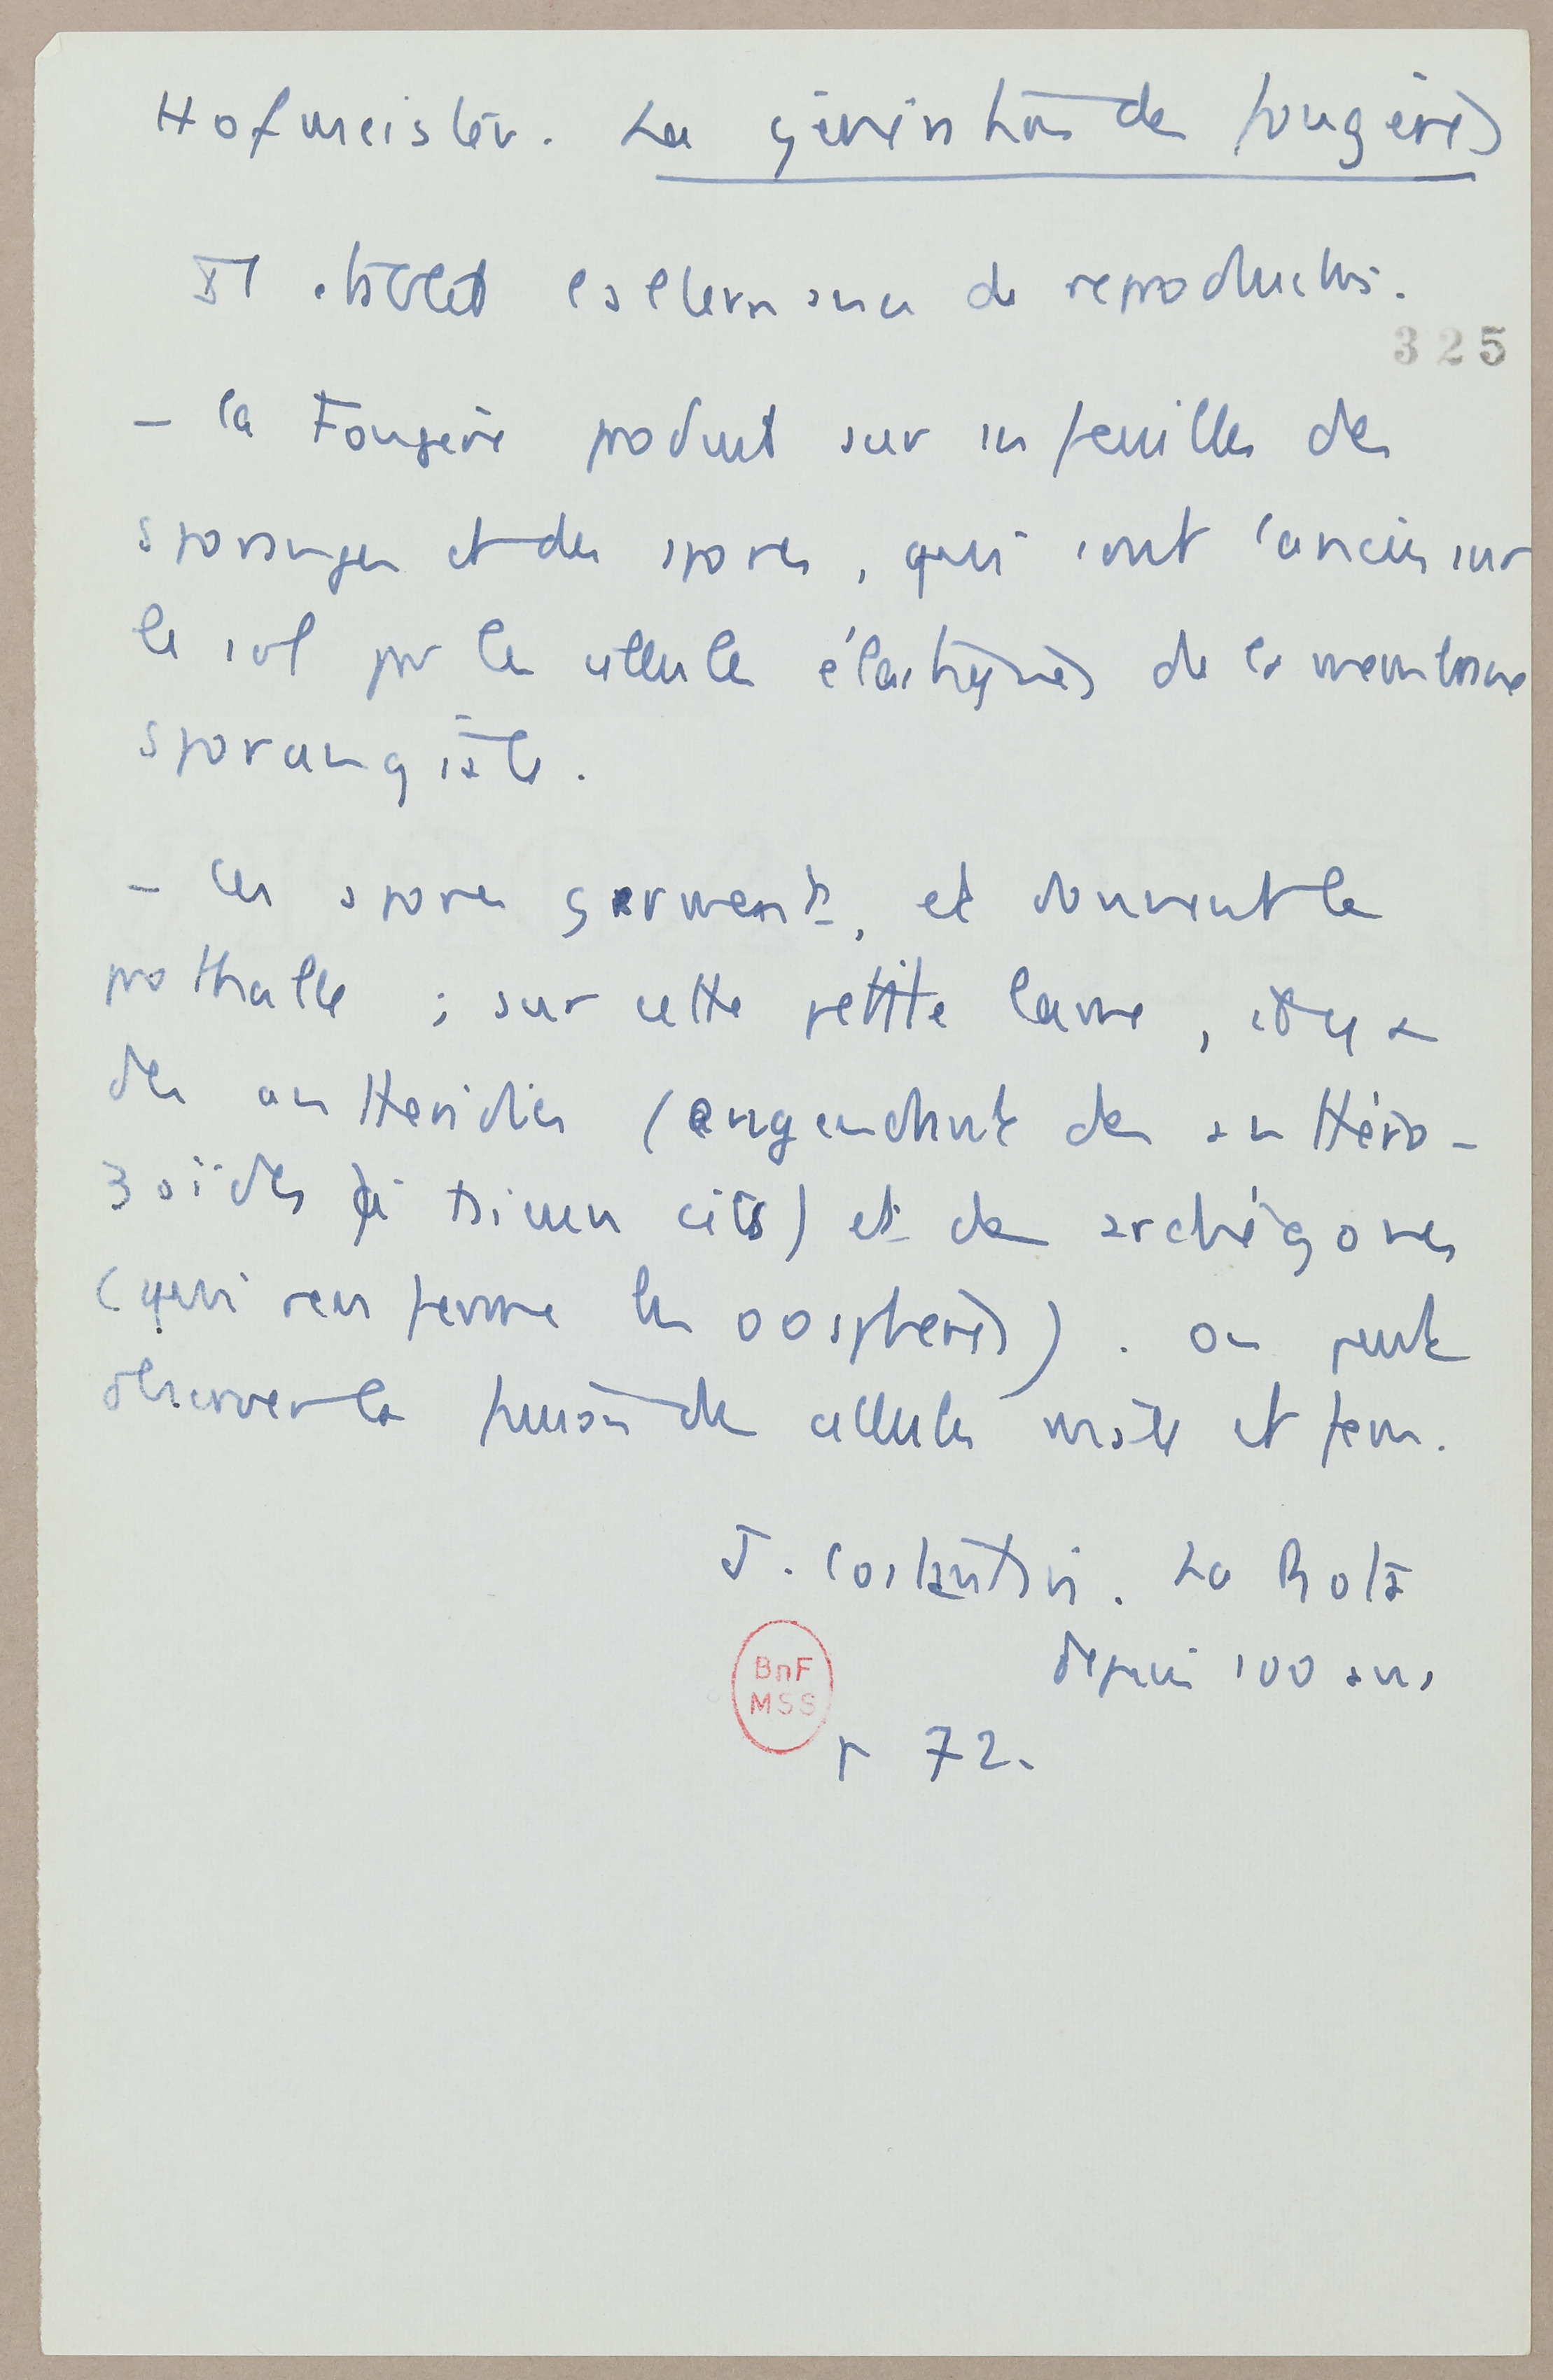 Hofmeister. La génération des fougères
Il établit l'alternance de reproduction.
325
– la Fougère produit sur ses feuilles des
sporanges et des spores, qui sont lancées sur
le sol par les cellules élastiques de la membrane
sporangiale.
– les spores germent, et donnent le
prothalle ; sur cette petite lame, il y a
des anthéridies (engendrent des anthéro-
zoïdes à cils) et des archégones
(qui renferme les oosphères). On peut
observer la fusion des cellules mâle et fem.
J. Costantin. La Bota
depuis 100 ans
BnF
MSS
p 72.